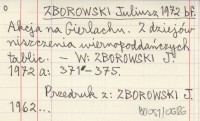 ZBOROWSKI Juliusz 1972 bf.
Akcja na Gierlachu. Z dziejów
niszczenia wiernopoddańczych
tablic. – W: ZBOROWSKI J.
1972 a: 371 – 375.
Przedruk z: ZBOROWSKI J.
1962...